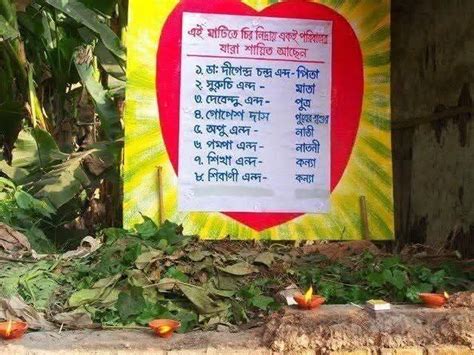 এই মাটিতে চির নিদ্রায় একই পরিবারের
যারা শায়িত আছেন
১. ডাঃ দীগেন্দ্র চন্দ্র এন্দ- পিতা
২ সুরুচি এন্দ - মাতা
৩ দেবেন্দু এন্দ- পুত্র
৪. গোপেশ দাস পুত্রের শ্বশুর
৫. অপু এন্দ - নাতী
৬ পম্পা এন্দ - নাতনী
৭. শিখা এন্দ- কন্যা
৮. শিবাণী এন্দ- কন্যা